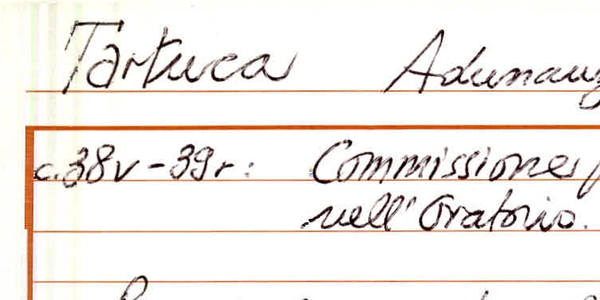 Tartuca Adunanz
c. 38v - 39r: Commissione
nell' Oratorio.